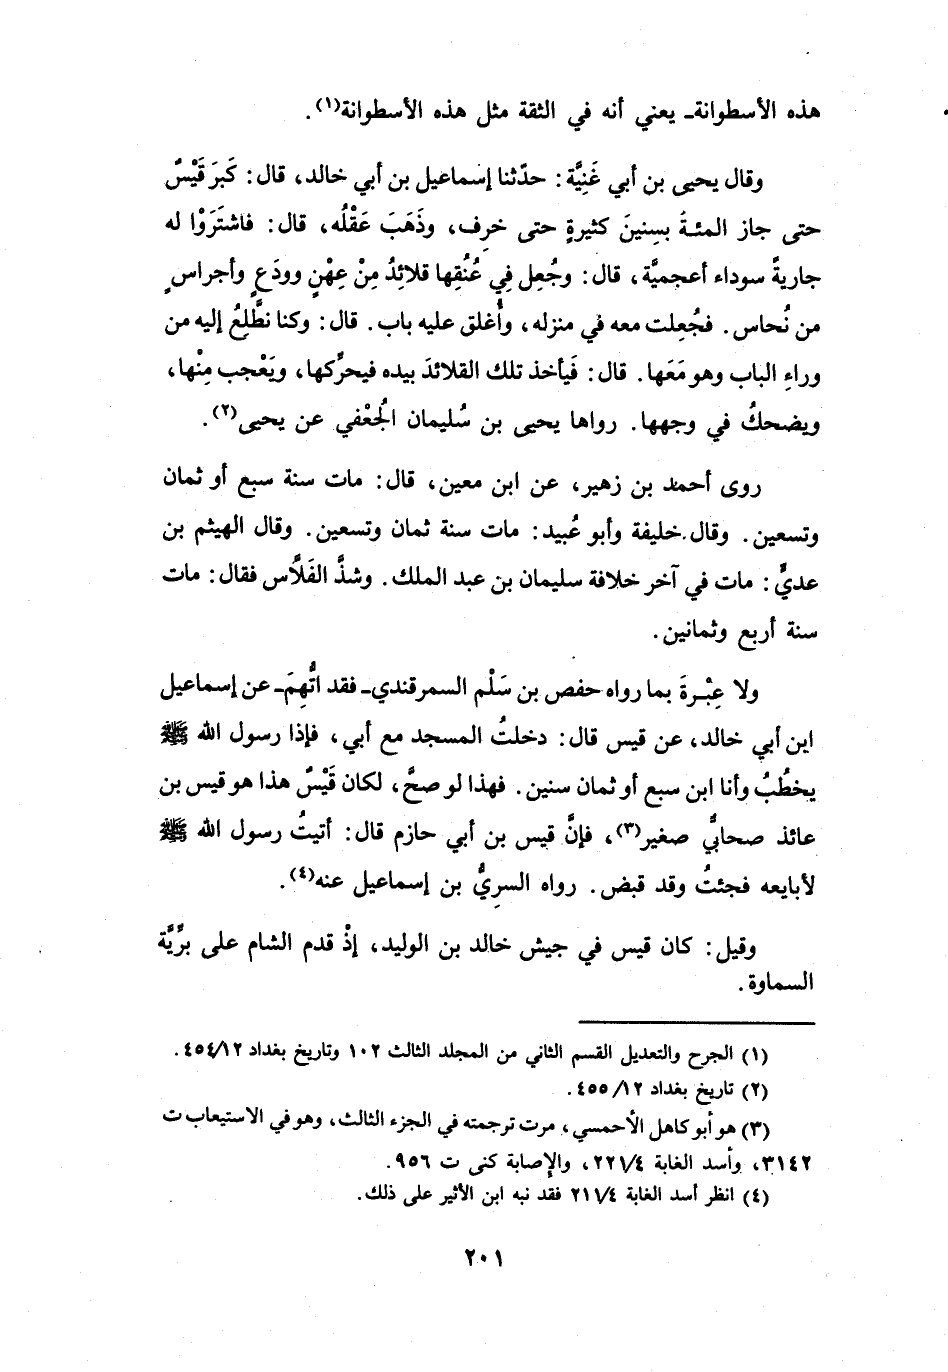 هذه الأسطوانة ـ يعني أنه في الثقة مثل هذه الأسطوانة(١) .
وقال يحيى بن أبي غَنِيَّة : حدّثنا إسماعيل بن أبي خالد، قال : كَبَرَ قَيْسٌ
حتى جاز المئـةَ بسِنينَ كثيرةٍ حتى خرِف، وذَهَبَ عَقْلُه، قال : فاشتَرَوْا له
جاريةً سوداء أعجميَّة، قال : وجُعِل فِي عُنُقِها قلائِدُ مِنْ عِهْنٍ وودَعٍ وأجراسٍ
من نُحاس . فجُعِلت معه في منزله، وأُغلق عليه باب . قال : وكنا نطَّلِعُ إليه من
وراءِ الباب وهو مَعَها . قال : فَيأخذ تلك القلائدَ بيده فيحرِّكها، ويَعْجب مِنْها،
ويضحكُ في وجهها . رواها يحيى بن سُليمان الجُعْفي عن يحيى(٢) .
روى أحمد بن زهير، عن ابن معين، قال : مات سنة سبع أو ثمان
وتسعين . وقال خليفة وأبو عُبيد : مات سنة ثمان وتسعين . وقال الهيثم بن
عديٍّ : مات في آخر خلافة سليمان بن عبد الملك . وشذَّ الفَلاَّس فقال : مات
سنة أربع وثمانين .
ولا عِبْـرةَ بما رواه حفص بن سَلْم السمرقندي ـ فقد اتُّهِمَ ـ عن إسماعيل
ابن أبي خالد، عن قيس قال : دخلتُ المسجد مع أبي، فإذا رسول الله ﷺ
يخطُبُ وأنا ابن سبع أو ثمان سنين . فهذا لو صحَّ، لكان قَيْسٌ هذا هو قيس بن
عائذ صحابيٌّ صغير(٣)، فإنَّ قيس بن أبي حازم قال : أتيتُ رسول الله ﷺ
لأبايعه فجئتُ وقد قبض . رواه السرِيُّ بن إسماعيل عنه(٤) .
وقيل : كان قيس في جيش خالد بن الوليد، إذْ قدم الشام على برِّيَّة
السماوة .
(١) الجرح والتعديل القسم الثاني من المجلد الثالث ١٠٢ وتاريخ بغداد ٤٥٤/١٢ .
(٢) تاريخ بغداد ٤٥٥/١٢ .
(٣) هو أبو كاهل الأحمسي، مرت ترجمته في الجزء الثالث، وهو في الاستيعاب ت
٣١٤٢، وأسد الغابة ٢٢١/٤، والإصابة كنى ت ٩٥٦ .
(٤) انظر أسد الغابة ٢١١/٤ فقد نبه ابن الأثير على ذلك .
٢٠١